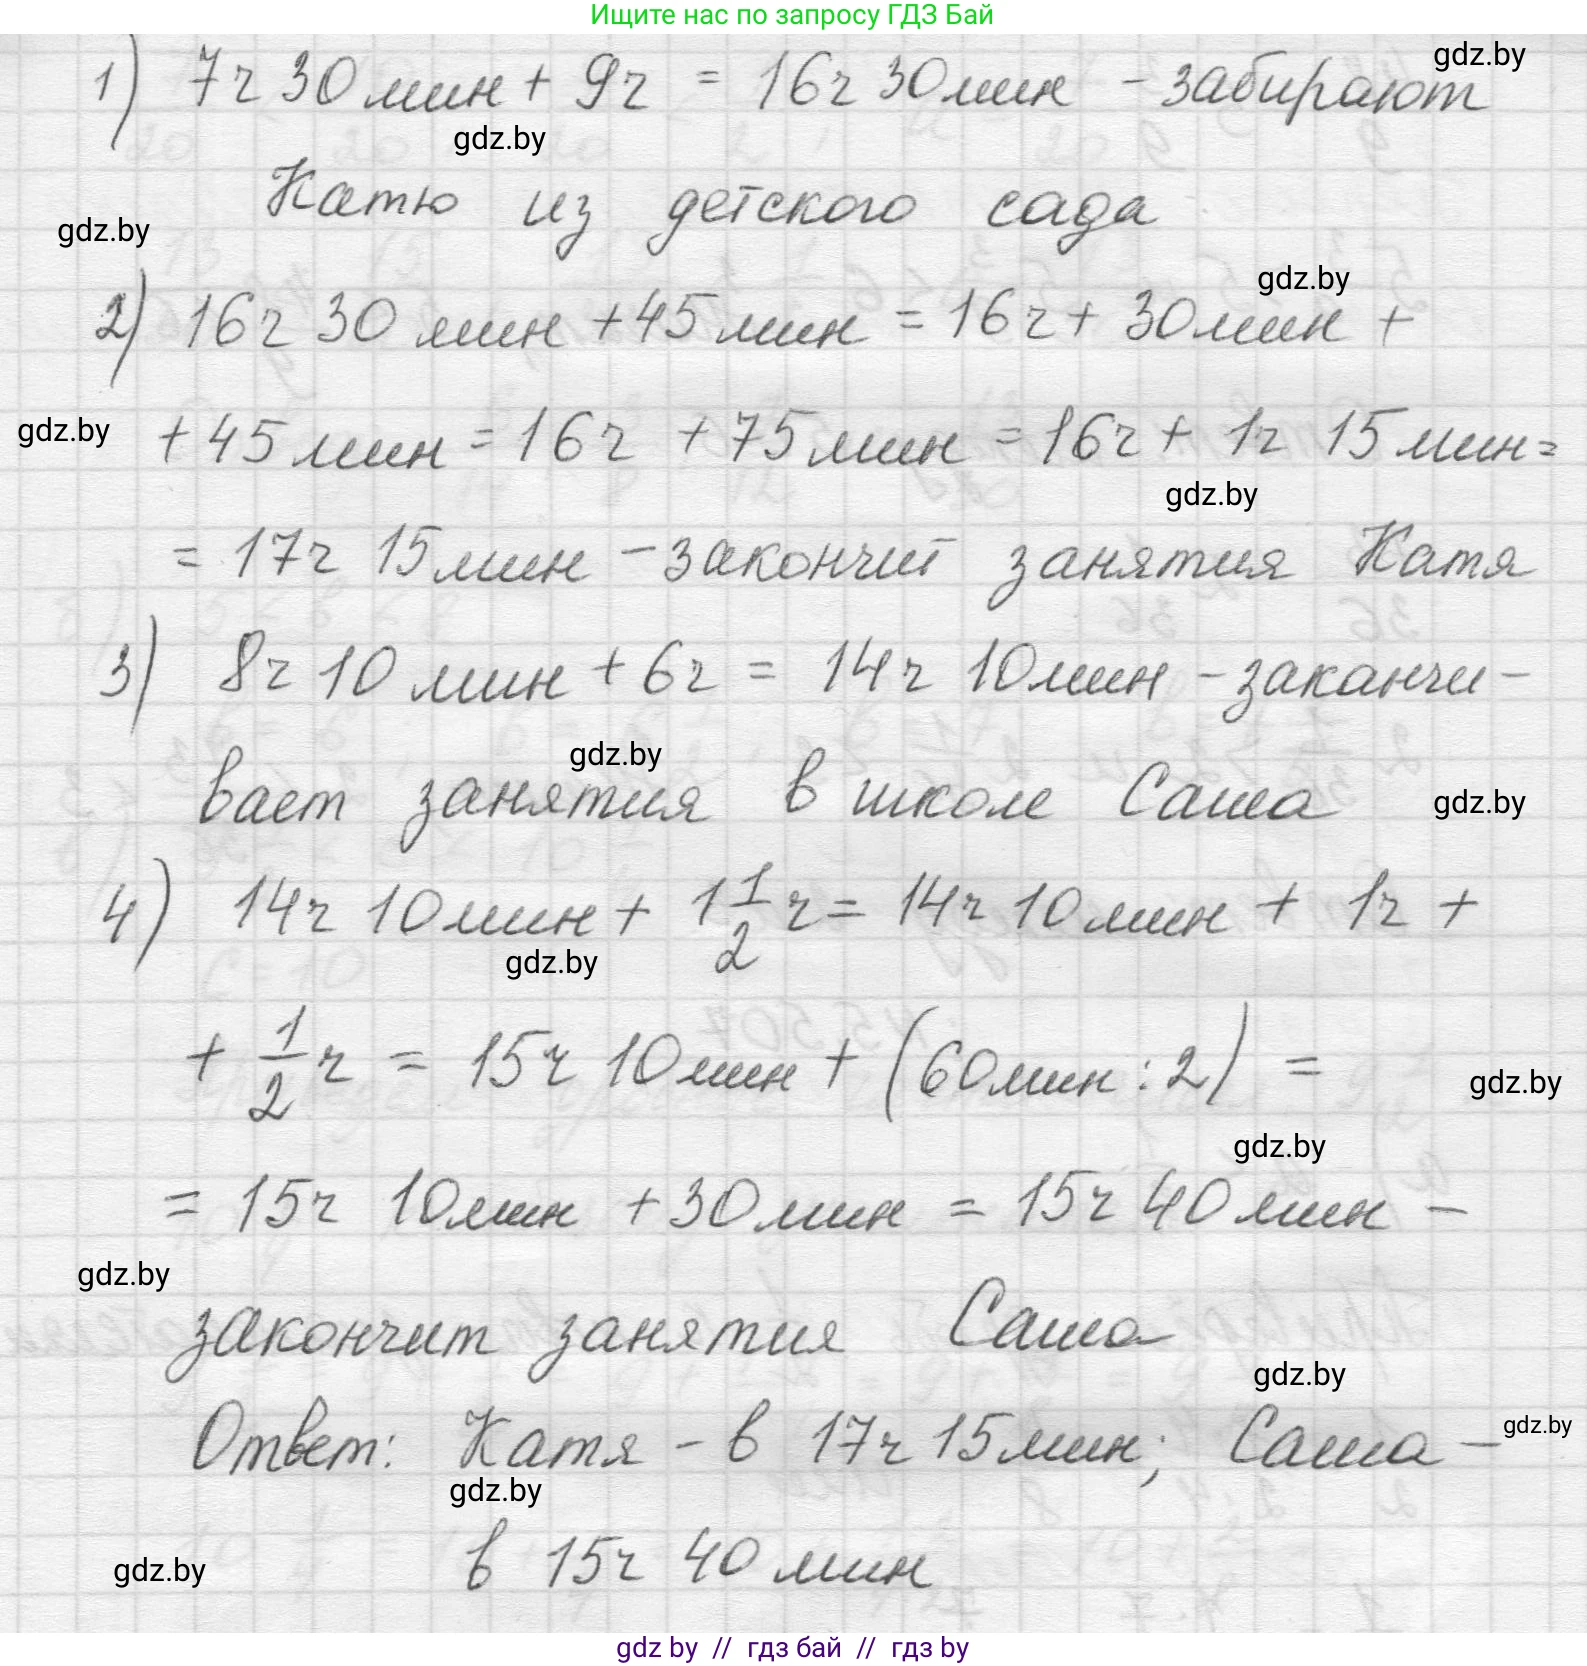 Ищите нас по запросу ГДЗ Бай
gdz.by
1) 7ч 30 мин + 9ч = 16ч 30 мин - забирают
gdz.by
Катю из детского сада
gdz.by
gdz.by
2) 16ч 30 мин + 45 мин = 16ч + 30 мин +
gdz.by
+ 45 мин = 16ч + 75 мин = 16ч + 1ч 15 мин =
gdz.by
= 17ч 15 мин - закончит занятия Катя
3) 8ч 10 мин + 6ч = 14ч 10 мин - заканчи-
gdz.by
вает занятия в школе Саша
gdz.by
4) 14ч 10 мин + 1 1/2 ч = 14ч 10 мин + 1ч +
gdz.by
+ 1/2 ч = 15ч 10 мин + (60 мин : 2) =
gdz.by
gdz.by
= 15ч 10 мин + 30 мин = 15ч 40 мин -
gdz.by
закончит занятия Саша
gdz.by
Ответ: Катя - в 17ч 15 мин; Саша -
gdz.by
gdz.by
в 15ч 40 мин
gdz.by
gdz by // гдз бай // гдз by